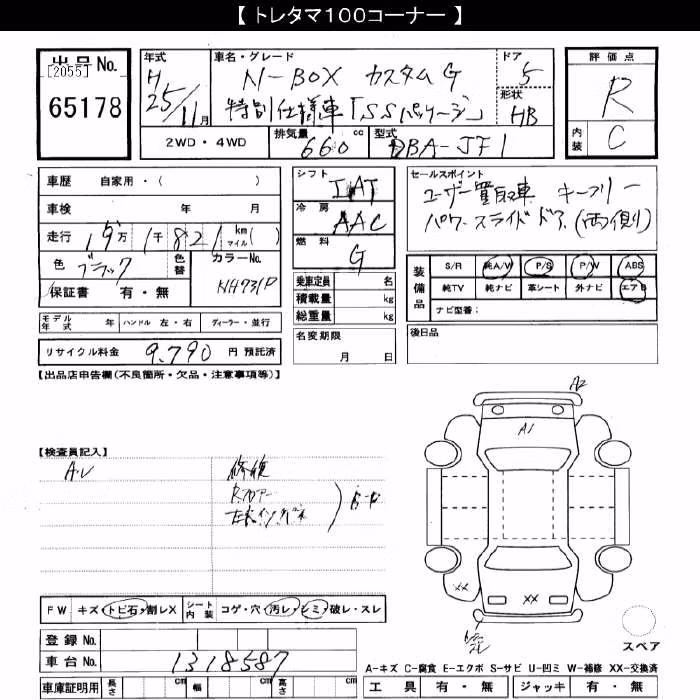 【 トレタマ100コーナー 】
出品No.
[2055]
65178
年式
H
25/11月
車名・グレード
N-BOX カスタムG
特別仕様車「SSパッケージ」
ドア
5
形状
HB
評価点
R
内装
C
2WD・4WD
排気量
660 cc
型式
DBA-JF1
車歴 自家用・( )
車検 年 月
走行 19万 1千821 km マイル( )
色 ブラック
色替
カラーNo.
NH731P
保証書 有・無
シフト
IAT
冷房
AAC
燃料
G
乗車定員 名
積載量 kg
総重量 kg
セールスポイント
ユーザー買取車 キーフリー
パワースライドドア(両側)
装備品
S/R 純A/V P/S P/W ABS
純TV 純ナビ 革シート 外ナビ エアB
ナビ型番:
モデル年式 年 ハンドル 左・右 ディーラー・並行
リサイクル料金 9,790 円 預託済
名変期限
月 日
後日品
【出品店申告欄(不良箇所・欠品・注意事項等)】
A2
A1
【検査員記入】
修復
Rフロアー
XX
XX
FW キズ・トビ石・割レX
シート内装 コゲ・穴・汚レ・シミ・破レ・スレ
スペア
登録No.
車台No. 1318587
A-キズ C-腐食 E-エクボ S-サビ U-凹ミ W-補修 XX-交換済
車庫証明用 長さ cm 幅 cm 高さ cm
工具 有・無 ジャッキ 有・無